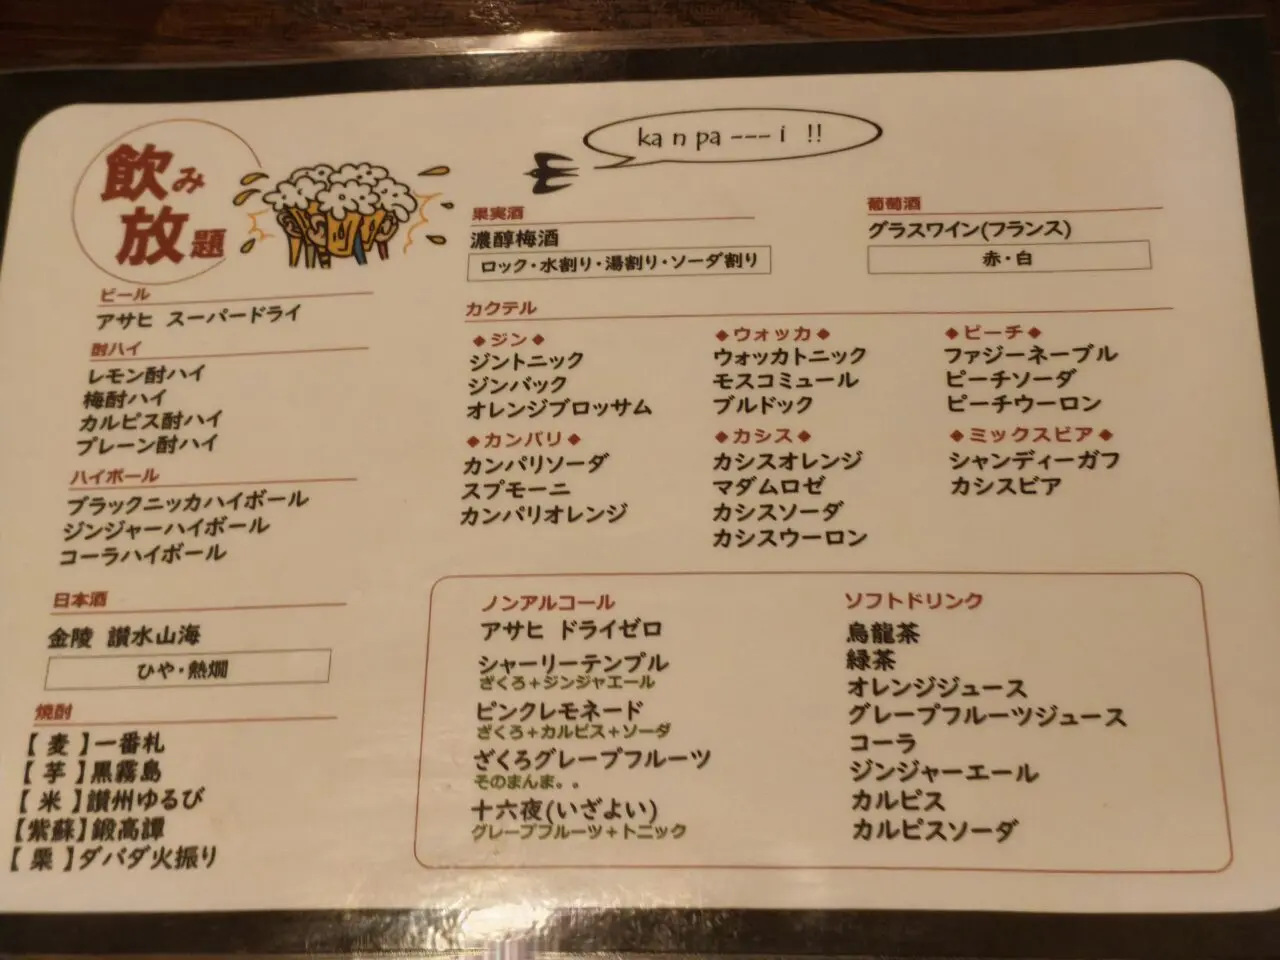 飲み
放題
ka n pa --- i !!
ビール
アサヒ スーパードライ
酎ハイ
レモン酎ハイ
梅酎ハイ
カルピス酎ハイ
プレーン酎ハイ
ハイボール
ブラックニッカハイボール
ジンジャーハイボール
コーラハイボール
日本酒
金陵 讃水山海
ひや・熱燗
焼酎
【 麦 】一番札
【 芋 】黒霧島
【 米 】讃州ゆるび
【紫蘇】鍛高譚
【 栗 】ダバダ火振り
果実酒
濃醇梅酒
ロック・水割り・湯割り・ソーダ割り
葡萄酒
グラスワイン(フランス)
赤・白
カクテル
◆ジン◆
ジントニック
ジンバック
オレンジブロッサム
◆ウォッカ◆
ウォッカトニック
モスコミュール
ブルドック
◆ピーチ◆
ファジーネーブル
ピーチソーダ
ピーチウーロン
◆カンパリ◆
カンパリソーダ
スプモーニ
カンパリオレンジ
◆カシス◆
カシスオレンジ
マダムロゼ
カシスソーダ
カシスウーロン
◆ミックスビア◆
シャンディーガフ
カシスビア
ノンアルコール
アサヒ ドライゼロ
シャーリーテンプル
ざくろ+ジンジャエール
ピンクレモネード
ざくろ+カルピス+ソーダ
ざくろグレープフルーツ
そのまんま。。
十六夜(いざよい)
グレープフルーツ+トニック
ソフトドリンク
烏龍茶
緑茶
オレンジジュース
グレープフルーツジュース
コーラ
ジンジャーエール
カルピス
カルピスソーダ